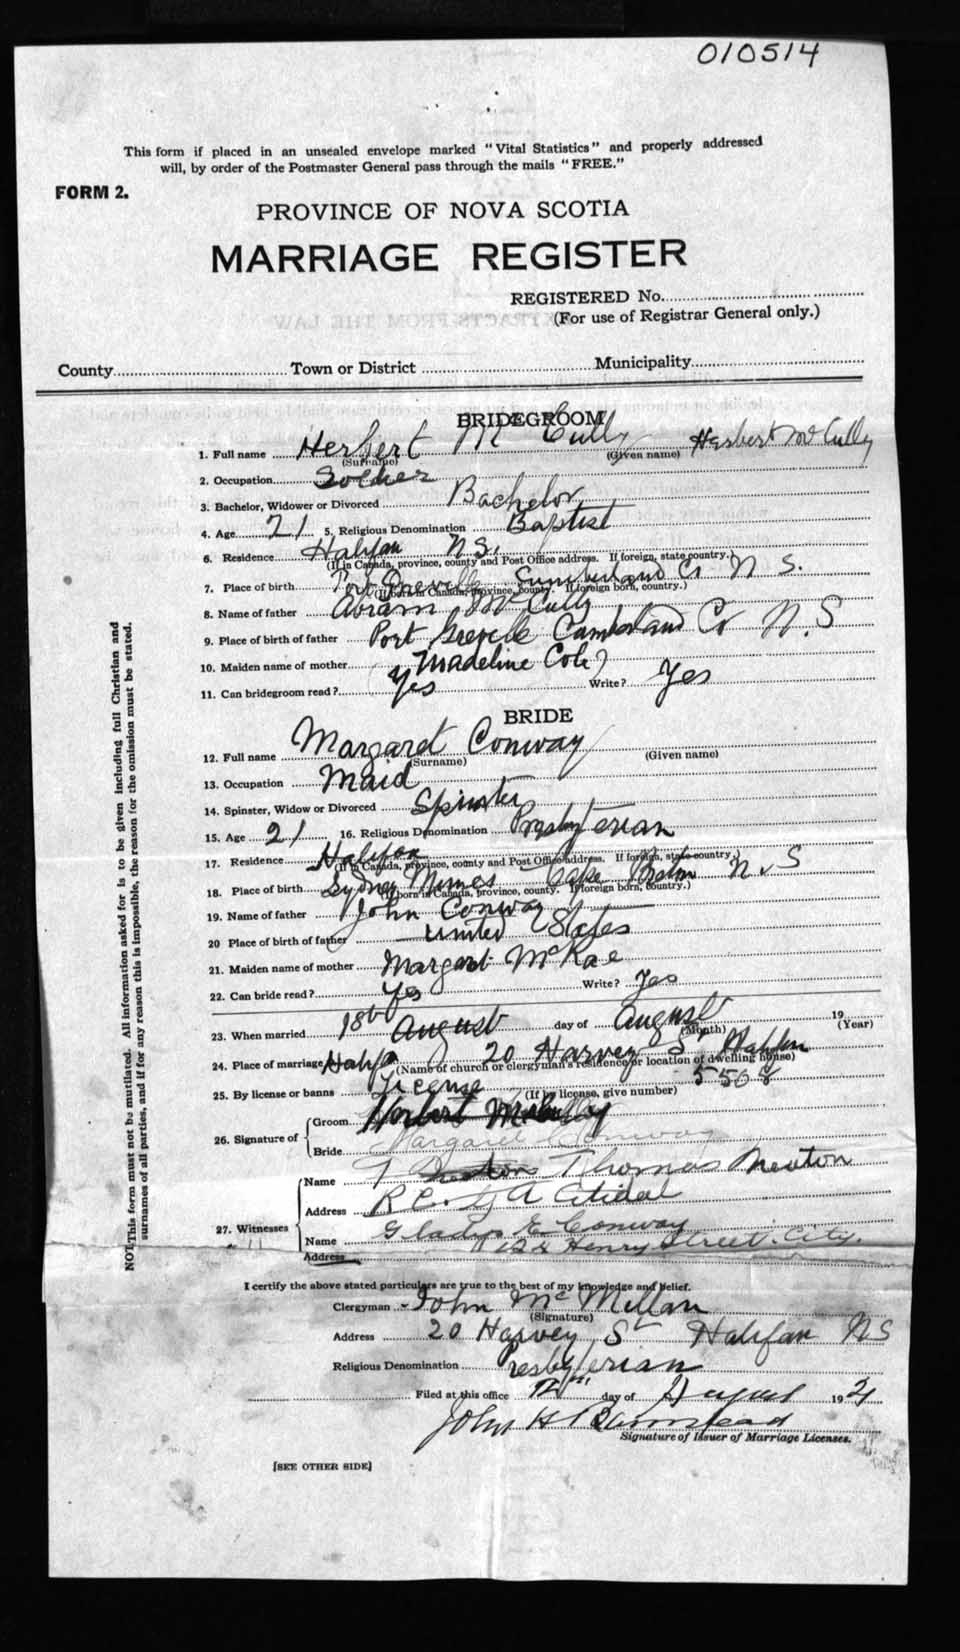 010514
This form if placed in an unsealed envelope marked "Vital Statistics" and properly addressed
will, by order of the Postmaster General pass through the mails "FREE."
FORM 2.
PROVINCE OF NOVA SCOTIA
MARRIAGE REGISTER
REGISTERED No.
(For use of Registrar General only.)
County Town or District Municipality
BRIDEGROOM
1. Full name Herbert Mc Cully Herbert McCully
(Surname) (Given name)
2. Occupation Soldier
3. Bachelor, Widower or Divorced Bachelor
4. Age 21 5. Religious Denomination Baptist
6. Residence Halifax N.S.
(If in Canada, province, county and Post Office address. If foreign, state country.)
7. Place of birth Port Greville Cumberland Co N. S.
(If born in Canada, province, county. If foreign born, country.)
8. Name of father Abram McCully
9. Place of birth of father Port Greville Cumberland Co N. S
10. Maiden name of mother Madeline Cole
11. Can bridegroom read? Yes Write? Yes
BRIDE
12. Full name Margaret Conway
(Surname) (Given name)
13. Occupation Maid
14. Spinster, Widow or Divorced Spinster
15. Age 21 16. Religious Denomination Presbyterian
17. Residence Halifax
(If in Canada, province, county and Post Office address. If foreign, state country.)
18. Place of birth Sydney Mines Cape Breton N. S
(If born in Canada, province, county. If foreign born, country.)
19. Name of father John Conway
20 Place of birth of father United States
21. Maiden name of mother Margaret McRae
22. Can bride read? Yes Write? Yes
23. When married 18th August day of August 19
(Month) (Year)
24. Place of marriage Halifax 20 Harvey St Halifax
(Name of church or clergyman's residence or location of dwelling house)
25. By license or banns License 5508
(If by license, give number)
26. Signature of
Groom Herbert McCully
Bride Margaret Conway
27. Witnesses
Name T Thomas Newton
Address R C. G A Citidal
Name Gladys E. Conway
Address 124 Henry Street. City.
I certify the above stated particulars are true to the best of my knowledge and belief.
Clergyman John McMillan
(Signature)
Address 20 Harvey St Halifax NS
Religious Denomination Presbyterian
Filed at this office day of August 1921
John H Barnstead
Signature of Issuer of Marriage Licenses.
[SEE OTHER SIDE]
NOTE This form must not be mutilated. All information asked for is to be given including full Christian and
surnames of all parties, and if for any reason this is impossible, the reason for the omission must be stated.